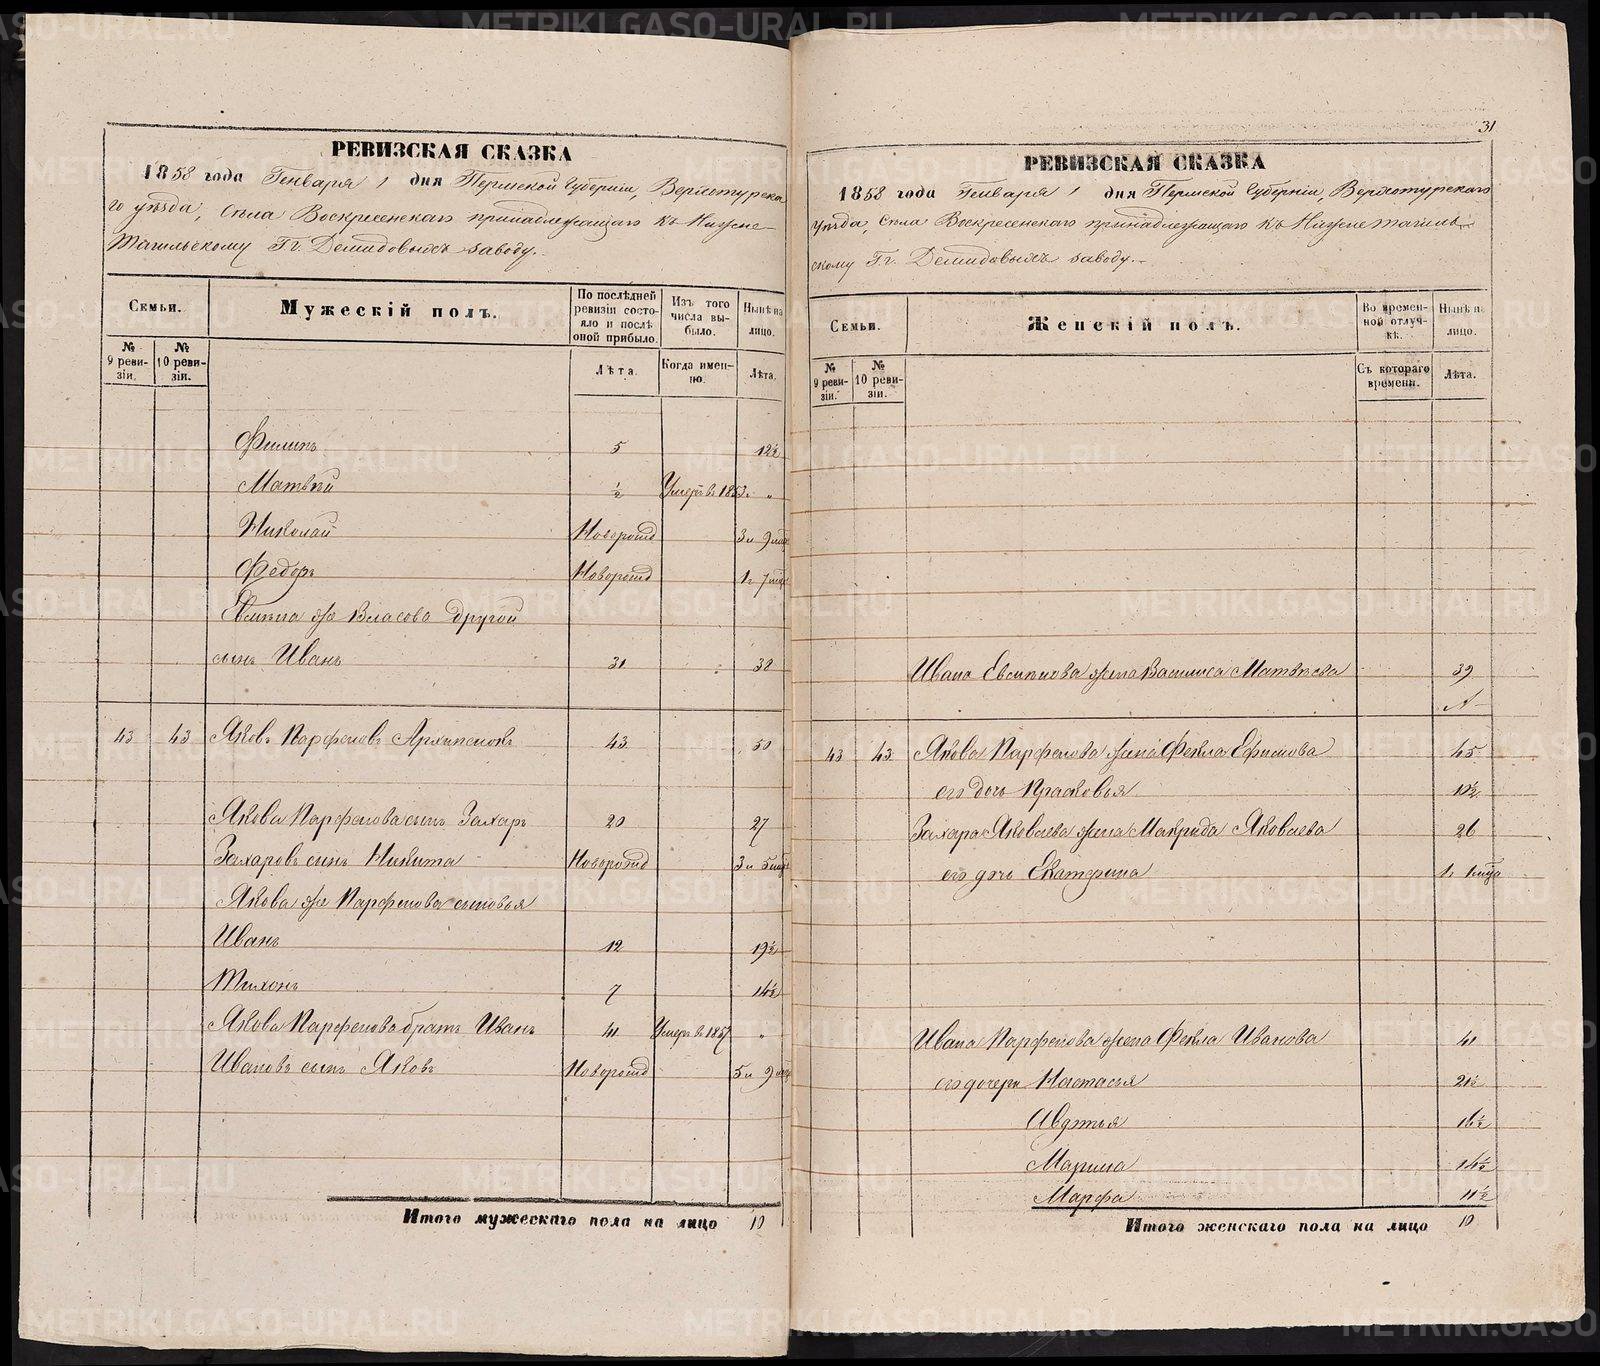 РЕВИЗСКАЯ СКАЗКА
1858 года Генваря 1 дня Пермской Губерніи, Верхотурска
го уѣзда, Села Воскресенскаго принадлежащаго къ Нижне-
Тагильскому Гг. Демидовыхъ заводу.
Семьи.
Мужескій полъ.
По послѣдней ревизіи состояло и послѣ оной прибыло.
Изъ того числа выбыло.
Нынѣ на лицо.
№ 9 ревизіи.
№ 10 ревизіи.
Лѣта.
Когда именно.
Лѣта.
Филипъ 5 12½
Матвѣй ½ Умеръ въ 1853 г. „
Николай Новорожд 3 и 9 мѣс
Федоръ Новорожд 1 г 7 мѣс
Евсипа же Власова другой
сынъ Иванъ 31 38
43 43 Яковъ Парфеновъ Архиповъ 43 50
Якова Парфенова сынъ Захаръ 20 27
Захаровъ сынъ Никита Новорожд 3 и 5 мѣс
Якова же Парфенова сыновья
Иванъ 12 19½
Тихонъ 7 14½
Якова Парфенова братъ Иванъ 41 Умеръ въ 1857 „
Ивановъ сынъ Яковъ Новорожд 5 и 9 мѣс
Итого мужескаго пола на лицо 10
31
РЕВИЗСКАЯ СКАЗКА
1858 года Генваря 1 дня Пермской Губерніи, Верхотурскаго
уѣзда, Села Воскресенскаго принадлежащаго къ Нижне Тагиль-
скому Гг. Демидовыхъ заводу.
Семьи.
Женскій полъ.
Во временной отлучкѣ.
Нынѣ на лицо.
№ 9 ревизіи.
№ 10 ревизіи.
Съ котораго времени.
Лѣта.
Ивана Евсипова жена Василиса Матвѣева 39
43 43 Якова Парфенова жена Фекла Ефимова 45
его дочь Прасковья 10½
Захара Яковлева жена Макрида Яковлева 26
его дочь Екатерина 1 г 1 мѣсц
Ивана Парфенова жена Фекла Иванова 41
его дочери Настасья 21½
Авдотья 16½
Марина 14½
Марфа 11½
Итого женскаго пола на лицо 10
METRIKI.GASO-URAL.RU